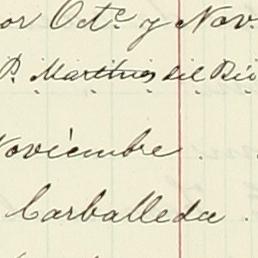 or Octe y Nov.
P. Martinez del Rio
Noviembre.
Carballeda.